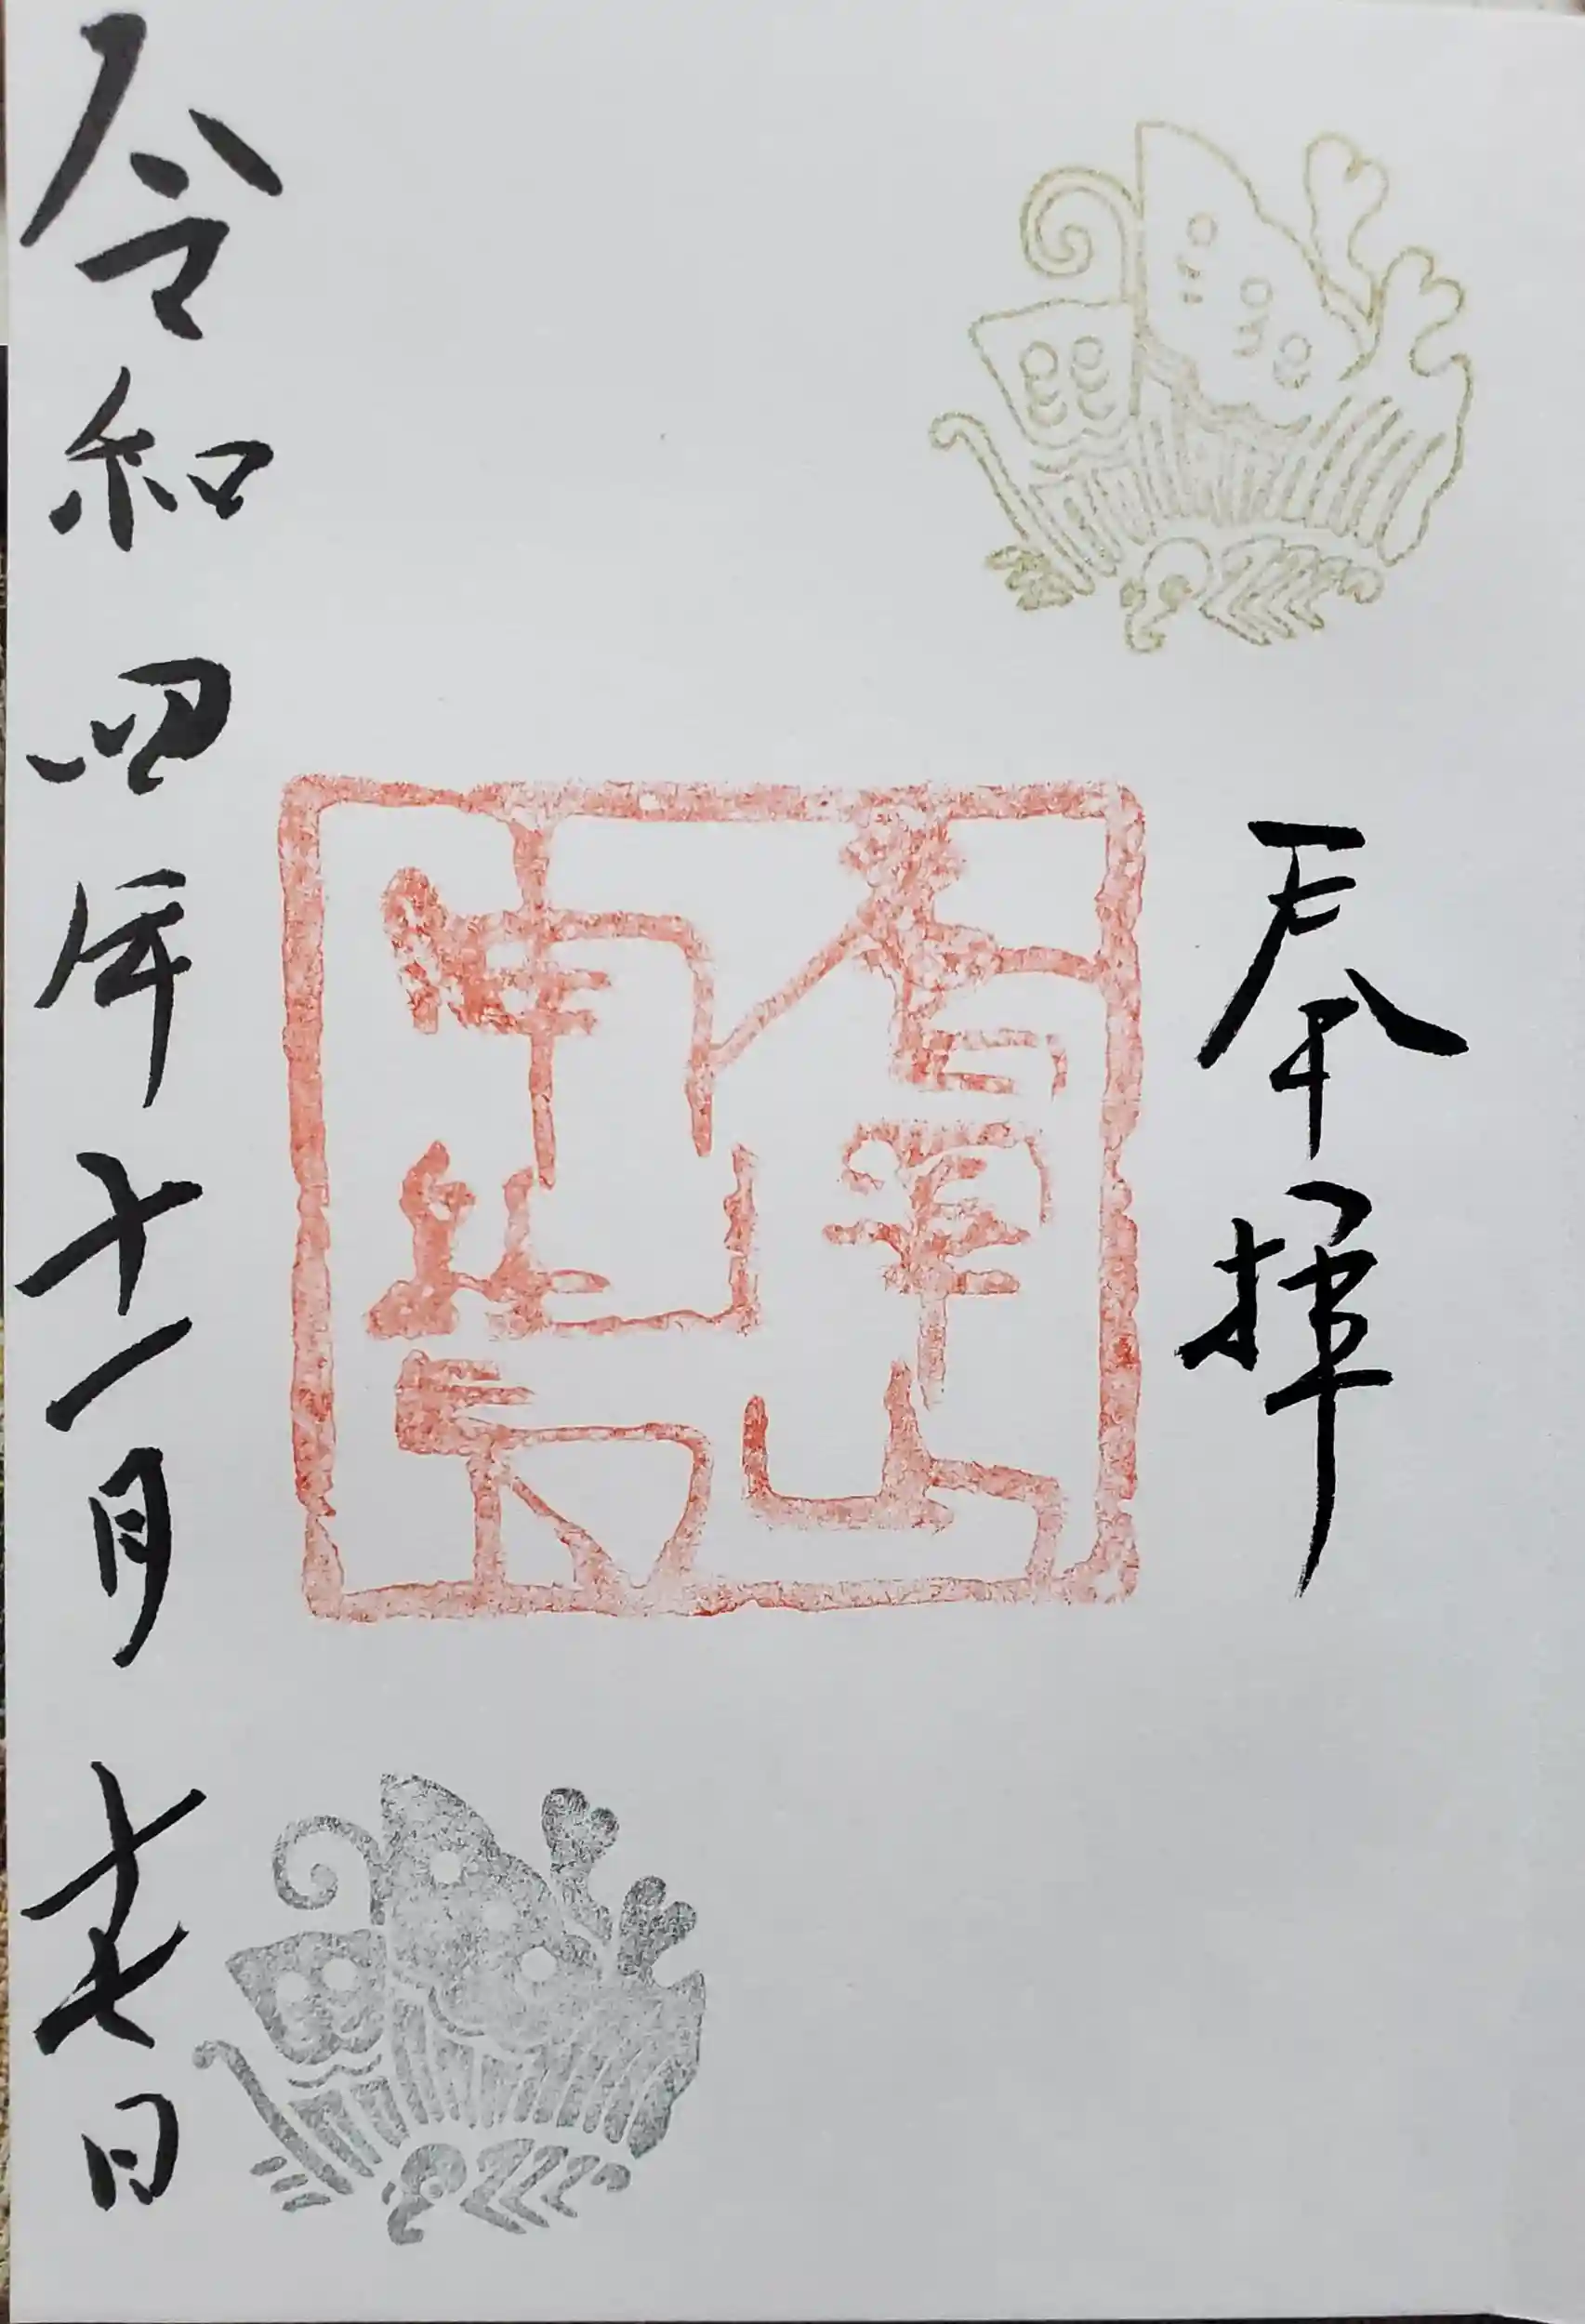 奉拝
令和四年十一月十七日